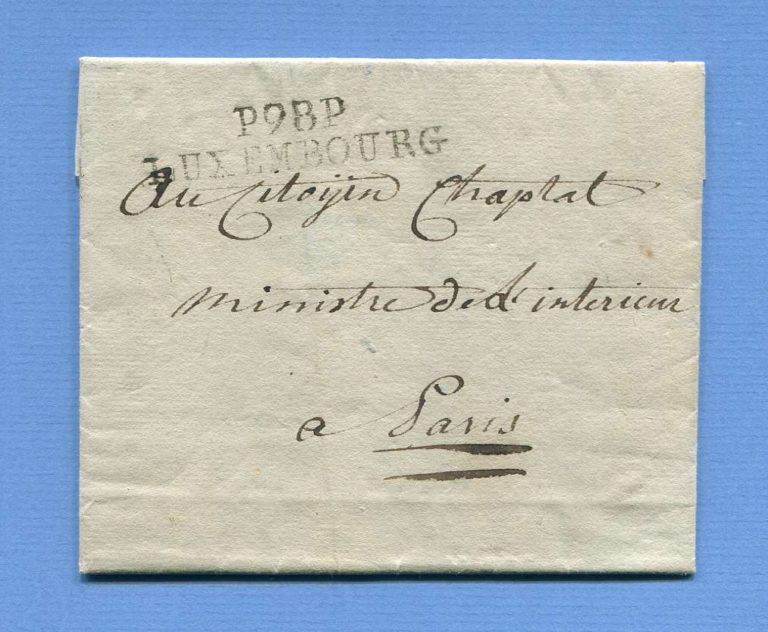 P98P
LUXEMBOURG
Au Citoyen Chaptal
ministre de l'interieur
a Paris